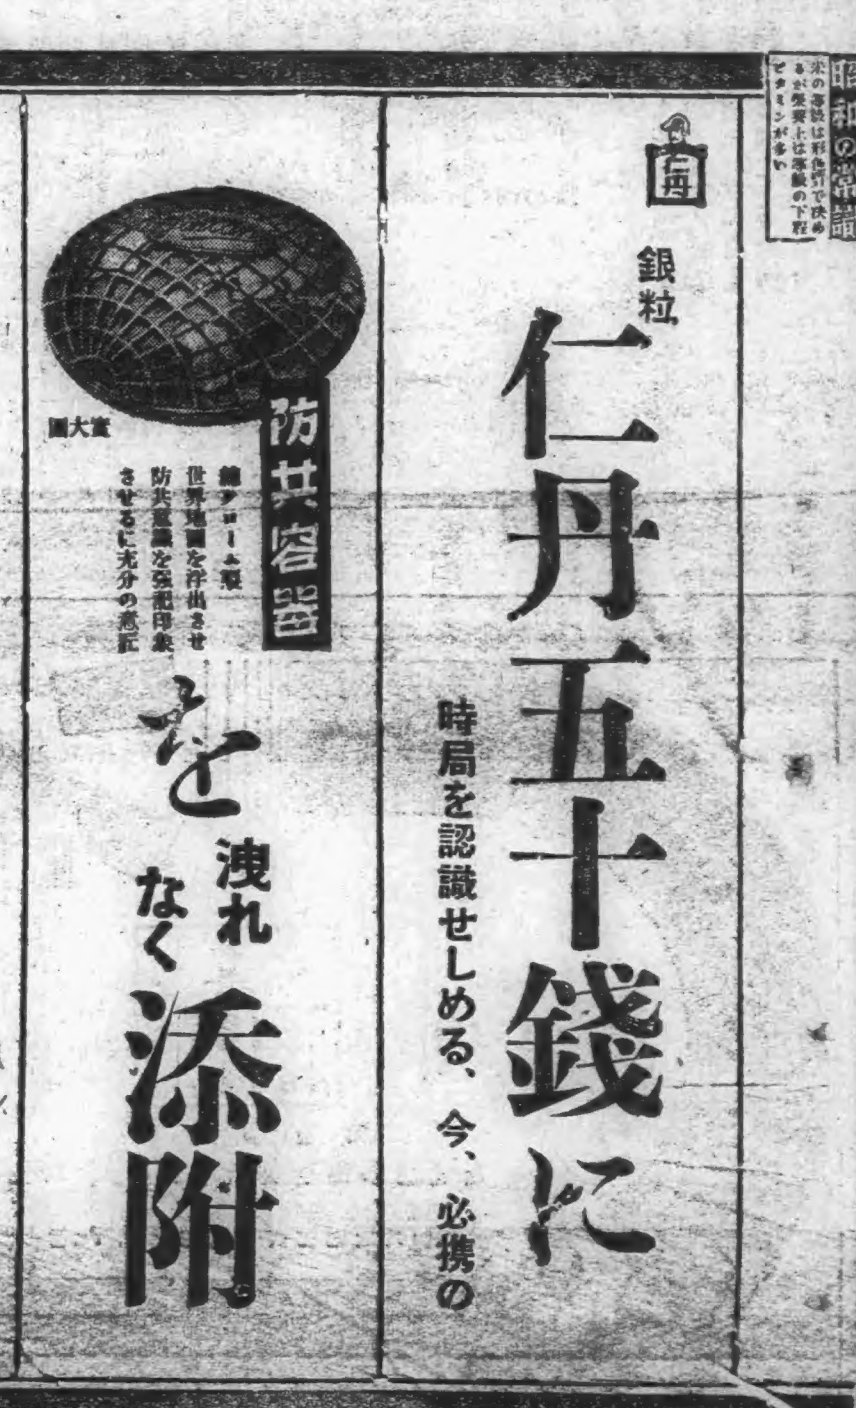 昭和の常識
米の等級は形色沢で決め
るが栄養上は等級の下程
ビタミンが多い
仁丹
銀粒
仁丹五十錢に
時局を認識せしめる、今、必携の
防共容器
總クローム製
世界地圖を浮出させ
防共意識を强記印象
させるに充分の意匠
實大圖
を
洩れ
なく
添附